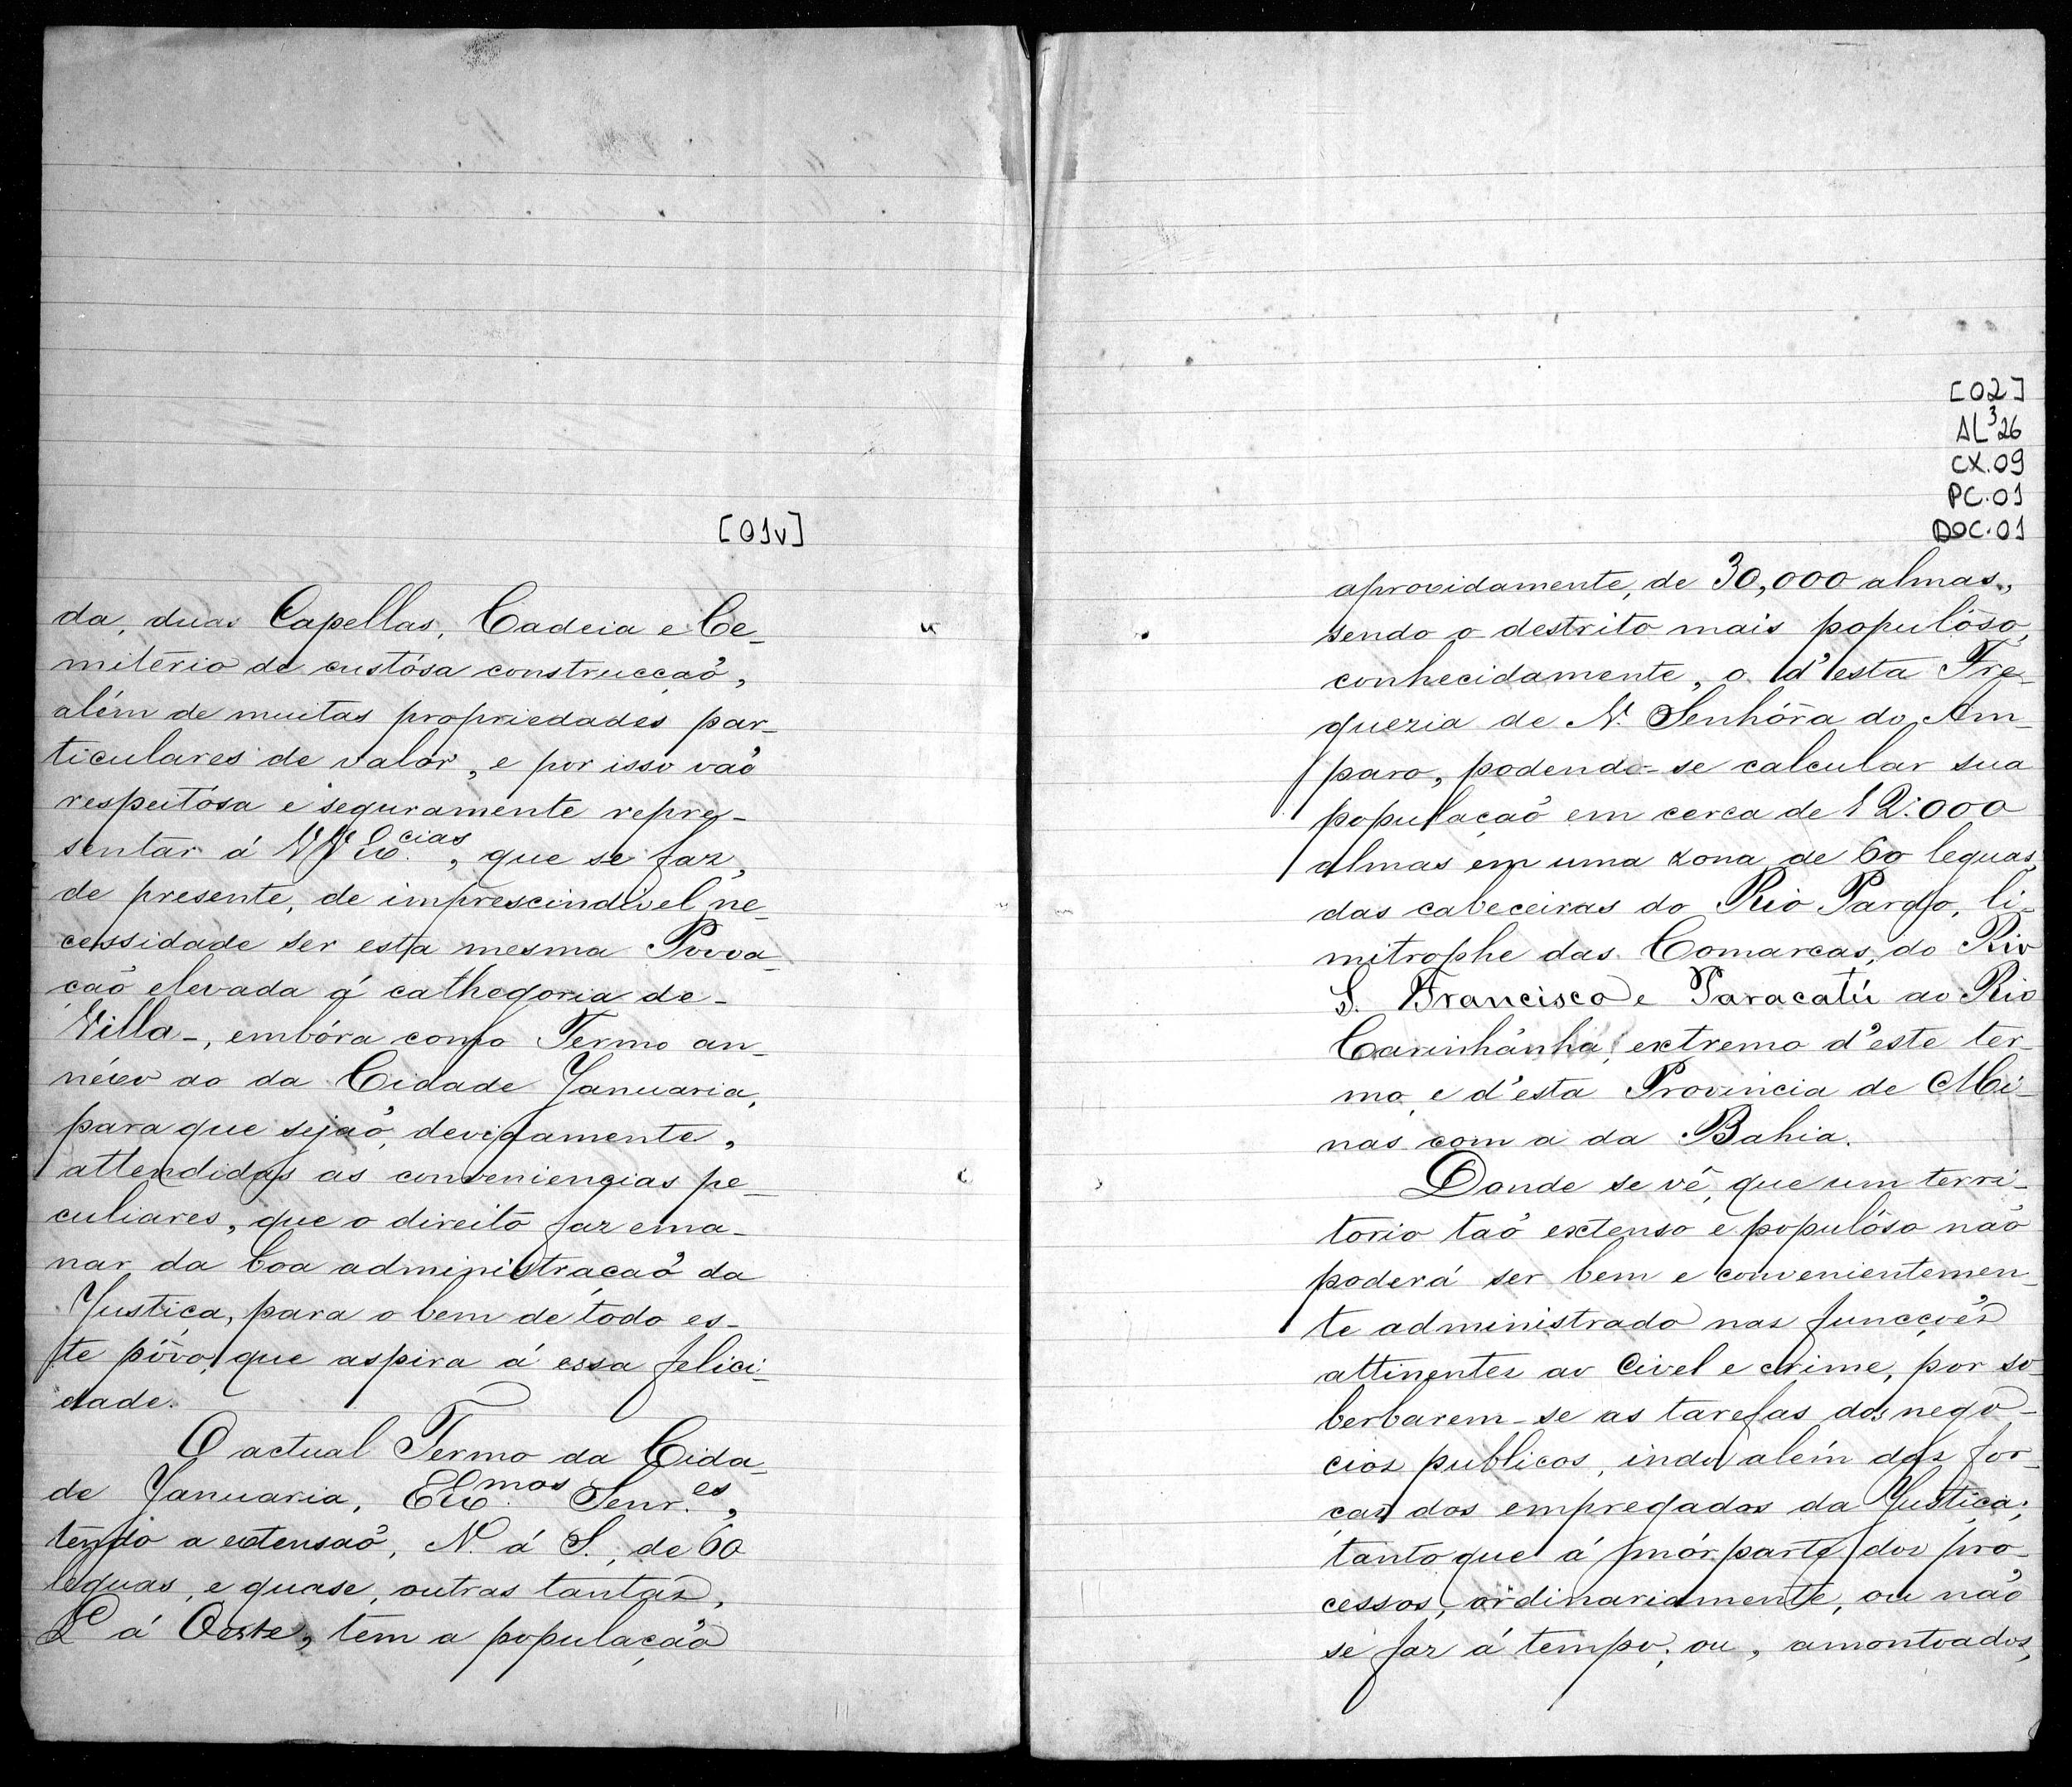 [01v]
da, duas Capellas, Cadeia e Ce-
mitério de custósa construcçaõ,
além de muitas propriedades par-
ticulares de valor, e por isso vaõ
respeitósa e seguramente repre-
sentar á VV Ex.cias, que se faz,
de presente, de imprescindivel ne-
cessidade ser esta mesma Povoa-
çaõ elevada á cathegoria de -
Villa -, embóra como Termo an-
néxo ao da Cidade Januaria,
para que sejaõ, devidamente,
attendidas as conveniencias pe-
culiares, que o direito faz ema-
nar da boa administraçaõ da
Justiça, para o bem de todo es-
te pôvo, que aspira á essa felici-
dade.
O actual Termo da Cida-
de Januaria, Ex.mos Senr.es,
tendo a extensaõ, N. á S., de 60
leguas, e quase, outras tantas,
L á Oeste, tem a populaçaõ
[02]
AL³26
CX.09
PC.01
DOC.01
aproxidamente, de 30,000 almas,
sendo o destrito mais populôso,
conhecidamente, o d'esta Fre-
guezia de N. Senhóra do Am-
paro, podendo-se calcular sua
populaçaõ em cerca de 12:000
almas em uma zona de 60 leguas,
das cabeceiras do Rio Pardo, li-
mitrophe das Comarcas, do Rio
S. Francisco e Paracatú ao Rio
Carinhánha, extremo d'este ter-
mo, e d'esta Provincia de Mi-
nas com a da Bahia.
Donde se vê, que um terri-
torio taõ extenso e populôso naõ
poderá ser bem e convenientemen-
te administrado nas funcçoẽs
attinentes ao Civel e crime, por so-
berbarem-se as tarefas dos nego-
cios publicos, indo além das for-
ças dos empregados da Justiça;
tanto que á mór parte dos pro-
cessos, ordinariamente, ou naõ
se faz á tempo; ou, amontoados,